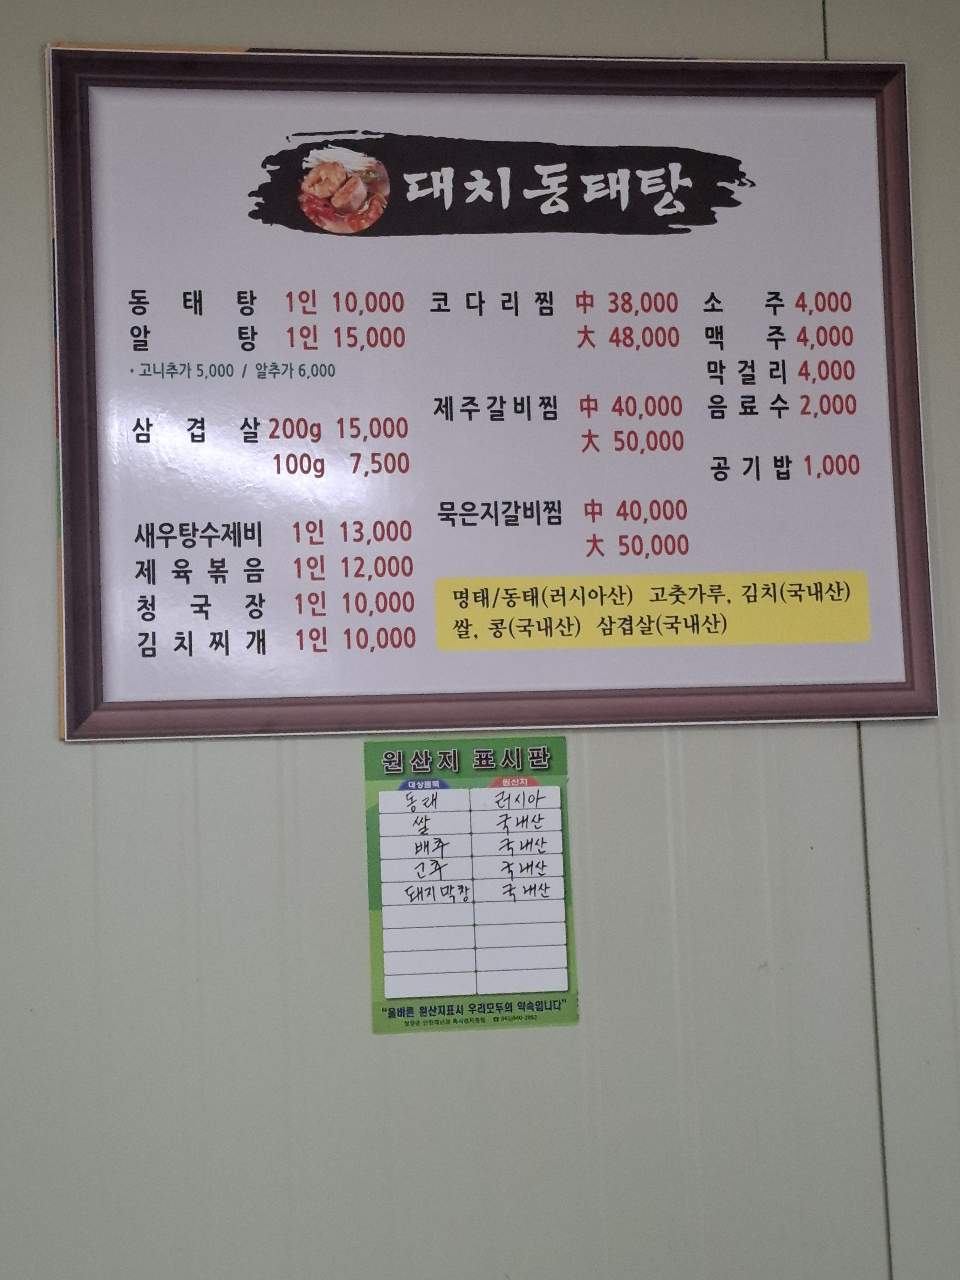 대치동태탕
동태탕 1인 10,000
알탕 1인 15,000
· 고니추가 5,000 / 알추가 6,000
삼겹살 200g 15,000
100g 7,500
새우탕수제비 1인 13,000
제육볶음 1인 12,000
청국장 1인 10,000
김치찌개 1인 10,000
코다리찜 中 38,000
大 48,000
제주갈비찜 中 40,000
大 50,000
묵은지갈비찜 中 40,000
大 50,000
소주 4,000
맥주 4,000
막걸리 4,000
음료수 2,000
공기밥 1,000
명태/동태(러시아산) 고춧가루, 김치(국내산)
쌀, 콩(국내산) 삼겹살(국내산)
원산지 표시판
대상품목 원산지
동태 러시아
쌀 국내산
배추 국내산
고추 국내산
돼지막창 국내산
"올바른 원산지표시 우리모두의 약속입니다"